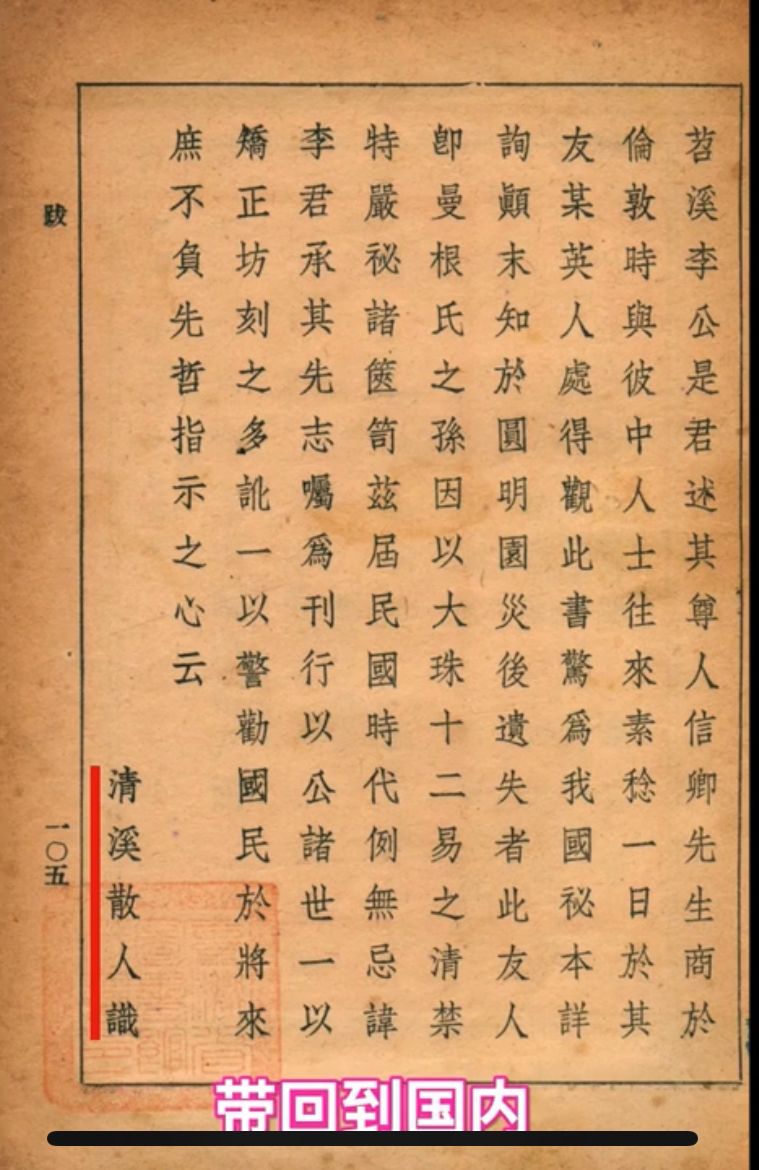 苕溪李公是君述其尊人信卿先生商於
倫敦時與彼中人士往來素稔一日於其
友某英人處得觀此書驚爲我國祕本詳
詢顚末知於圓明園災後遺失者此友人
卽曼根氏之孫因以大珠十二易之清禁
特嚴祕諸篋笥茲屆民國時代例無忌諱
李君承其先志囑爲刊行以公諸世一以
矯正坊刻之多訛一以警勸國民於將來
庶不負先哲指示之心云
清溪散人識
跋
一〇五
带回到国内